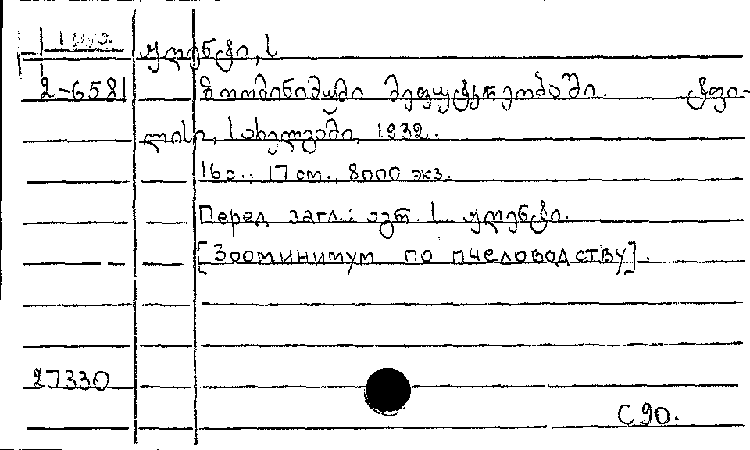 ჟღენტი, ს
2-6581 ზოომინიმუმი მეფუტკრეობაში. ტფი-
ლისი, სახელგამი, 1932.
16с.; 17 см. 8000 экз.
Перед загл.: авт. ს. ჟღენტი.
[Зооминимум по пчеловодству].
27330
С90.